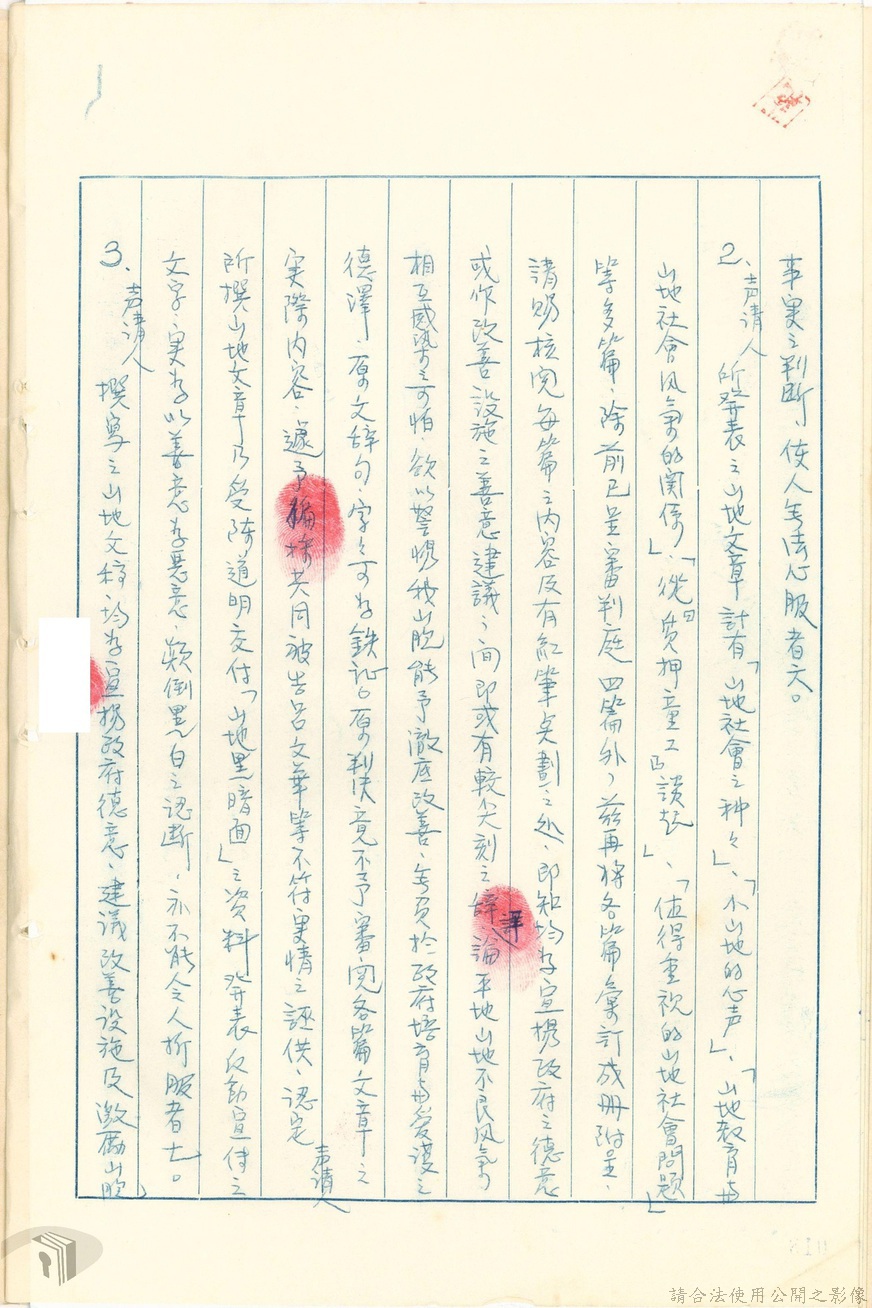 事実之判断、使人無法心服者六。
2、声请人所發表之山地文章計有「山地社會之种々」、「小山地的心声」、「山地教育与
山地社會风氣的関係」、「從『質押童工』談起」、「值得重視的山地社會問題」
等多篇、除前已呈審判庭四篇外、茲再将各篇彙訂成册附呈、
請賜核究每篇之内容及有紅筆点劃之処、即知均为宣揚政府之德意
或作改善設施之善意建議、间即或有較尖刻之辞譯論平地山地不良风氣
相互感染之可怕、欲以警惕我山胞能予澈底改善、無負於政府培育与爱護之
德澤、原文辞句、字々可为鉄証、原判決竟不予審究各篇文章之
実際内容、遽予採共同被告呂文華等不符実情之誣供、認定声请人
所撰山地文章乃受陈道明交付「山地黑暗面」之資料發表反動宣傳之
文字、実为以善意为惡意、顛倒黑白之認断、亦不能令人折服者七。
3、声请人撰寫之山地文稿均为宣揚政府德意、建議改善設施及激勵山胞
請合法使用公開之影像